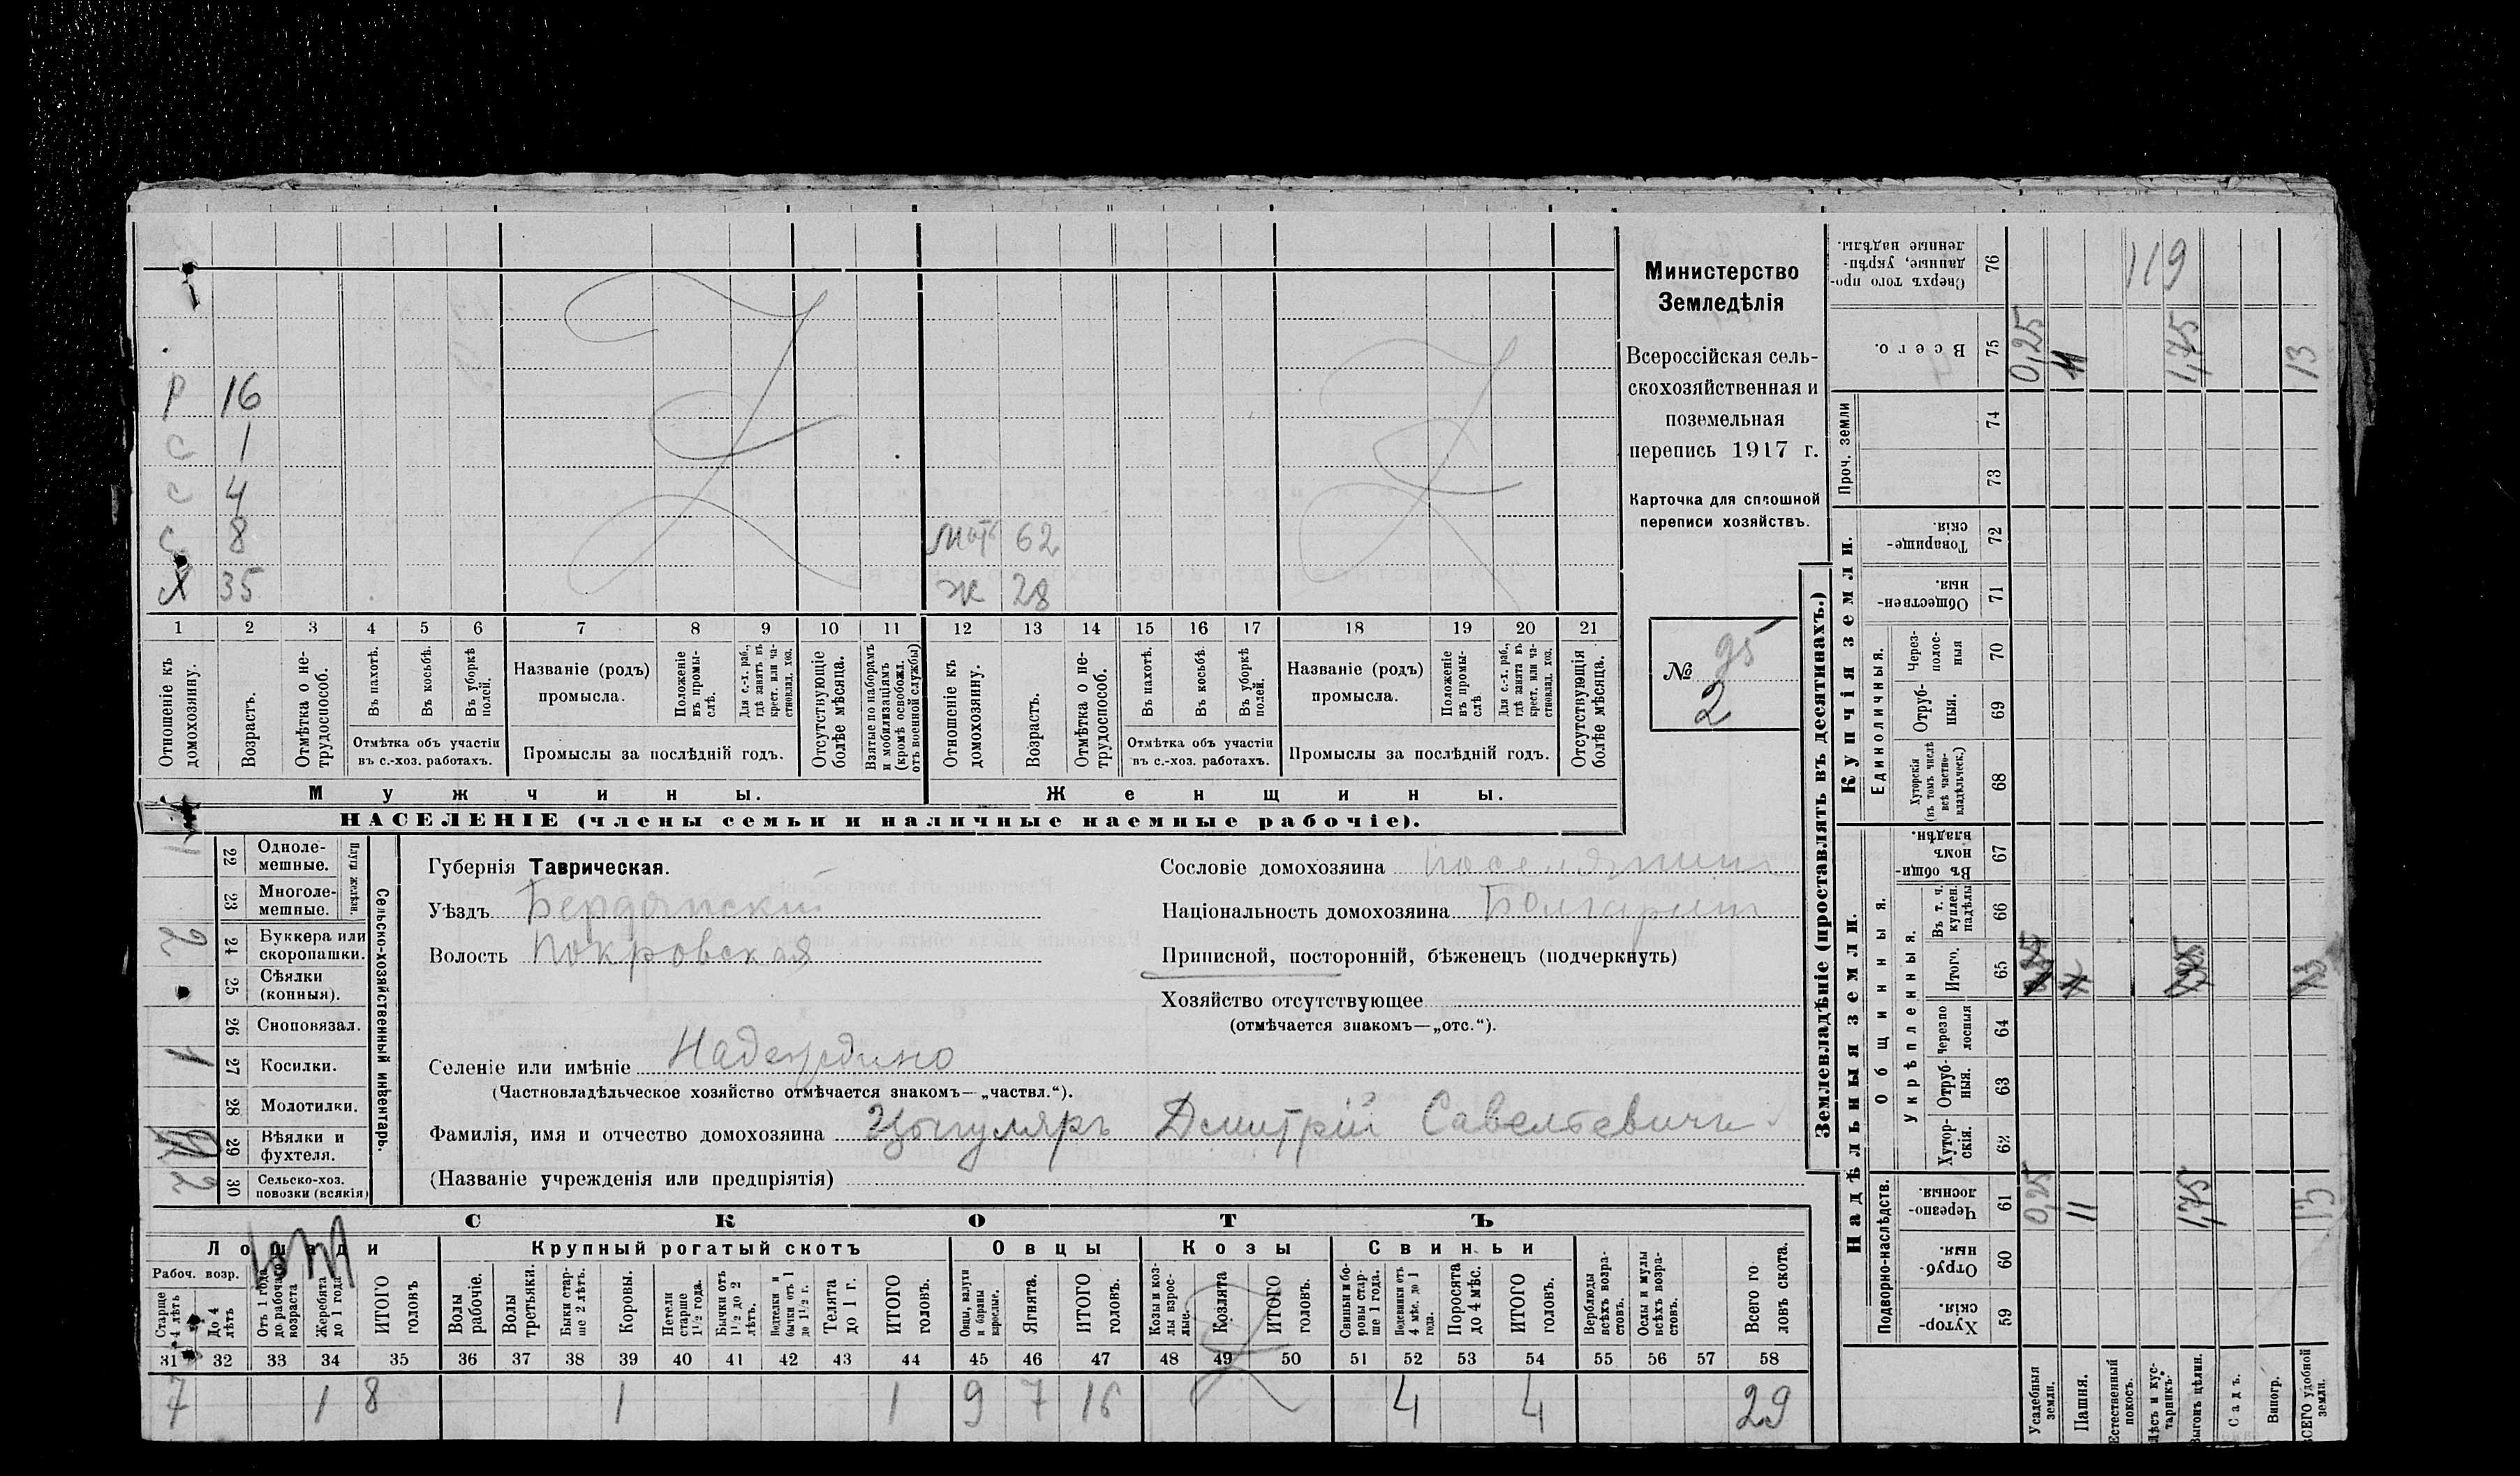 Министерство
Земледѣлія
Всероссійская сель-
скохозяйственная и
поземельная
перепись 1917 г.
Карточка для сплошной
переписи хозяйствъ.
№ 95
2
Р 16
С 1
С 4
С 8 мать 62
Х 35 ж 28
1 2 3 4 5 6 7 8 9 10 11 12 13 14 15 16 17 18 19 20 21
Отношеніе къ домохозяину.
Возрастъ.
Отмѣтка о не-трудоспособ.
Въ пахотѣ.
Въ косьбѣ.
Въ уборкѣ полей.
Отмѣтка объ участіи
въ с.-хоз. работахъ.
Названіе (родъ)
промысла.
Положеніе въ промы-слѣ.
Для с.-х. раб., гдѣ занятъ въ крест. или ча-стновлад. хоз.
Промыслы за послѣдній годъ.
Отсутствующіе болѣе мѣсяца.
Взятые по наборамъ и мобилизаціямъ (кромѣ освобожд. отъ военной службы)
Отношеніе къ домохозяину.
Возрастъ.
Отмѣтка о не-трудоспособ.
Въ пахотѣ.
Въ косьбѣ.
Въ уборкѣ полей.
Отмѣтка объ участіи
въ с.-хоз. работахъ.
Названіе (родъ)
промысла.
Положеніе въ промы-слѣ
Для с.-х. раб., гдѣ занята въ крест. или ча-стновлад. хоз.
Промыслы за послѣдній годъ.
Отсутствующія болѣе мѣсяца.
Мужчины.
Женщины.
НАСЕЛЕНІЕ (члены семьи и наличные наемные рабочіе).
Сельско-хозяйственный инвентарь.
Плуги желѣзн.
22 Одноле-мешные. 1
23 Многоле-мешные.
24 Буккера или скоропашки. 2
25 Сѣялки (конныя).
26 Сноповязал.
27 Косилки. 1
28 Молотилки.
29 Вѣялки и фухтеля.
30 Сельско-хоз. повозки (всякія) 2
Губернія Таврическая.
Уѣздъ Бердянскій
Волость Покровская
Сословіе домохозяина поселянин
Національность домохозяина Болгарин
Приписной, посторонній, бѣженецъ (подчеркнуть)
Хозяйство отсутствующее
(отмѣчается знакомъ—„отс.“).
Селеніе или имѣніе Надеждино
(Частновладѣльческое хозяйство отмѣчается знакомъ—„частвл.“).
Фамилія, имя и отчество домохозяина Цынгуляръ Дмитрій Савельевичъ
(Названіе учрежденія или предпріятія)
СКОТЪ
Лошади
Крупный рогатый скотъ
Овцы
Козы
Свиньи
Рабоч. возр.
Старше 4 лѣтъ
До 4 лѣтъ
Отъ 1 года до рабочаго возраста
Жеребята до 1 года
ИТОГО головъ
Волы рабочіе.
Волы третьяки.
Быки стар-ше 2 лѣтъ.
Коровы.
Нетели старше 1½ года.
Бычки отъ 1½ до 2 лѣтъ.
Подтелки и бычки отъ 1 до 1½ г.
Телята до 1 г.
ИТОГО головъ.
Овцы, валухи и бараны взрослые.
Ягнята.
ИТОГО головъ.
Козы и коз-лы взрос-лые.
Козлята
ИТОГО головъ.
Свиньи и бо-ровы стар-ше 1 года.
Подсвинки отъ 4 мѣс. до 1 года.
Поросята до 4 мѣс.
ИТОГО головъ.
Верблюды всѣхъ возра-стовъ.
Ослы и мулы всѣхъ возра-стовъ.
Всего го-ловъ скота.
31 32 33 34 35 36 37 38 39 40 41 42 43 44 45 46 47 48 49 50 51 52 53 54 55 56 57 58
7 1 8 1 1 9 7 16 4 4 29
Землевладѣніе (проставлять въ десятинахъ.)
Сверхъ того про-данные, укрѣп-ленные надѣлы. 76 119
Всего. 75 0,25 11 1,75 13
Проч. земли
74
73
Купчія земли.
Товарище-скія. 72
Обществен-ныя. 71
Единоличныя.
Через-полос-ныя 70
Отруб-ныя. 69
Хуторскія (въ томъ числѣ всѣ частно-владѣльческ.) 68
Надѣльныя земли.
Общинныя.
Въ общин-номъ владѣн. 67
Укрѣпленныя.
Въ т. ч. куплен. надѣлы 66
Итого. 65 0,25 11 1,75 13
Черезпо-лосныя 64
Отруб-ныя. 63
Хутор-скія. 62
Подворно-наслѣдств.
Черезпо-лосныя. 61 0,25 11 1,75 13
Отруб-ныя. 60
Хутор-скія. 59
Усадебныя земли.
Пашня.
Естественный покосъ.
Лѣсъ и кус-тарникъ.
Выгонъ цѣлин.
Садъ.
Виногр.
ВСЕГО удобной земли.